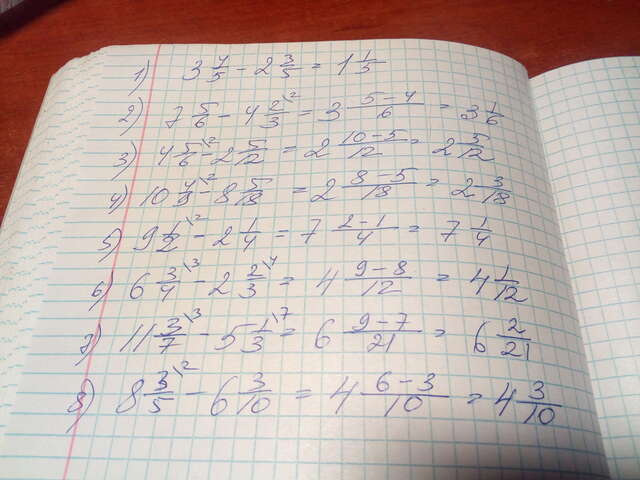 1) 3 4/5 - 2 3/5 = 1 1/5
2) 7 5/6 - 4 2/3 \2 = 3 5-4/6 = 3 1/6
3) 4 5/6 \2 - 2 5/12 = 2 10-5/12 = 2 5/12
4) 10 4/8 \2 - 8 5/18 = 2 8-5/18 = 2 3/18
5) 9 1/2 \2 - 2 1/4 = 7 2-1/4 = 7 1/4
6) 6 3/4 \3 - 2 2/3 \4 = 4 9-8/12 = 4 1/12
7) 11 3/7 \3 - 5 1/3 \7 = 6 9-7/21 = 6 2/21
8) 8 3/5 \2 - 6 3/10 = 4 6-3/10 = 4 3/10